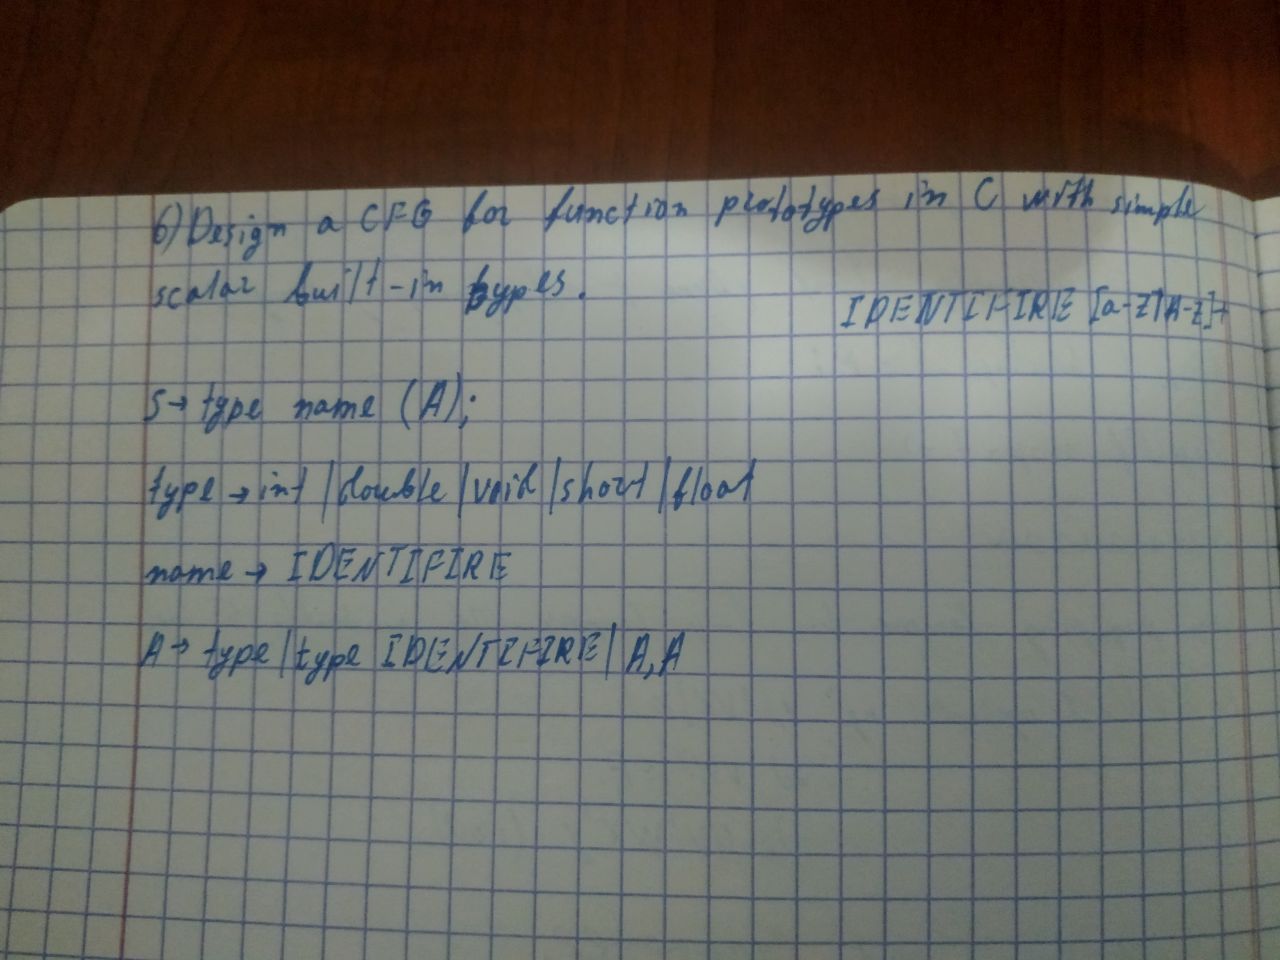 6) Design a CFG for function prototypes in C with simple
scalar built-in types.
IDENTIFIRE [a-z|A-z]+
S → type name (A);
type → int | double | void | short | float
name → IDENTIFIRE
A → type | type IDENTIFIRE | A, A